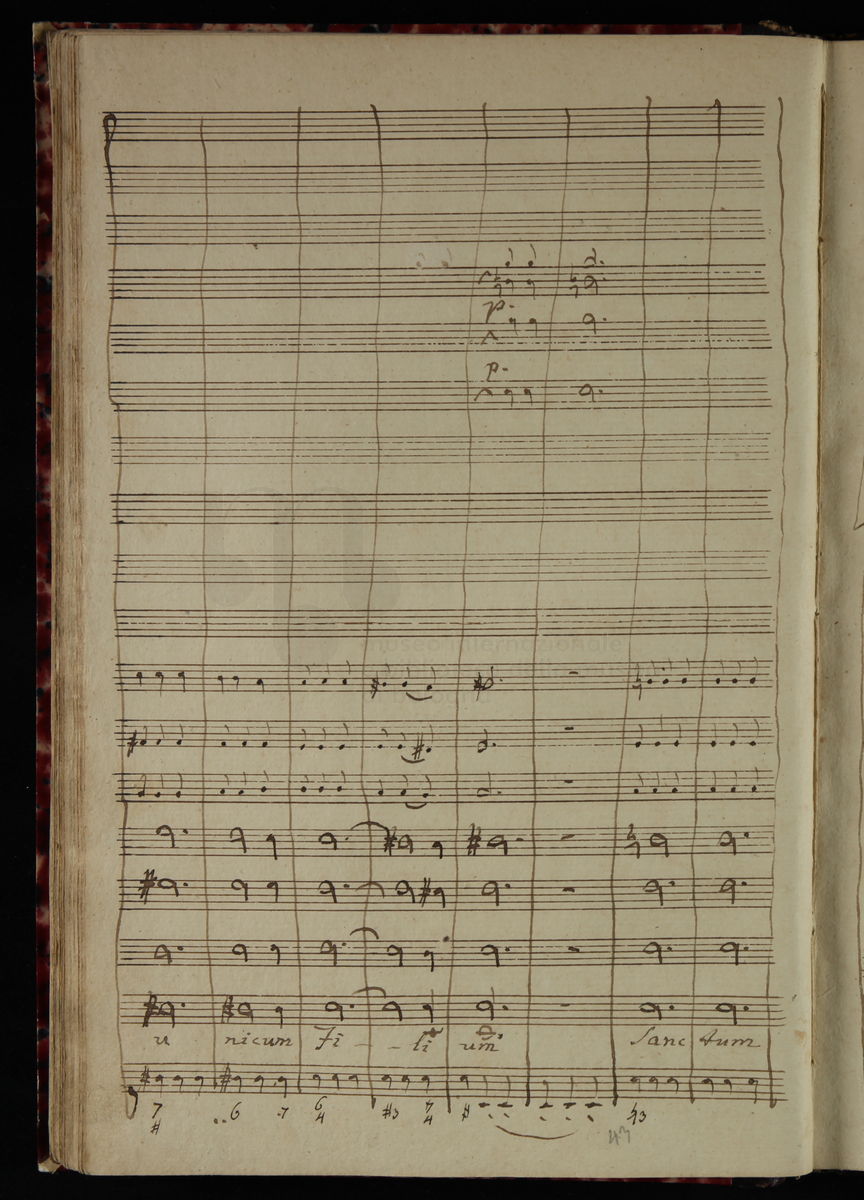 p.
p.
museo internazionale
u nicum Fi - - li um Sanc tum
7 6 7 6 #3 7 # ♮3
# 4 4
43